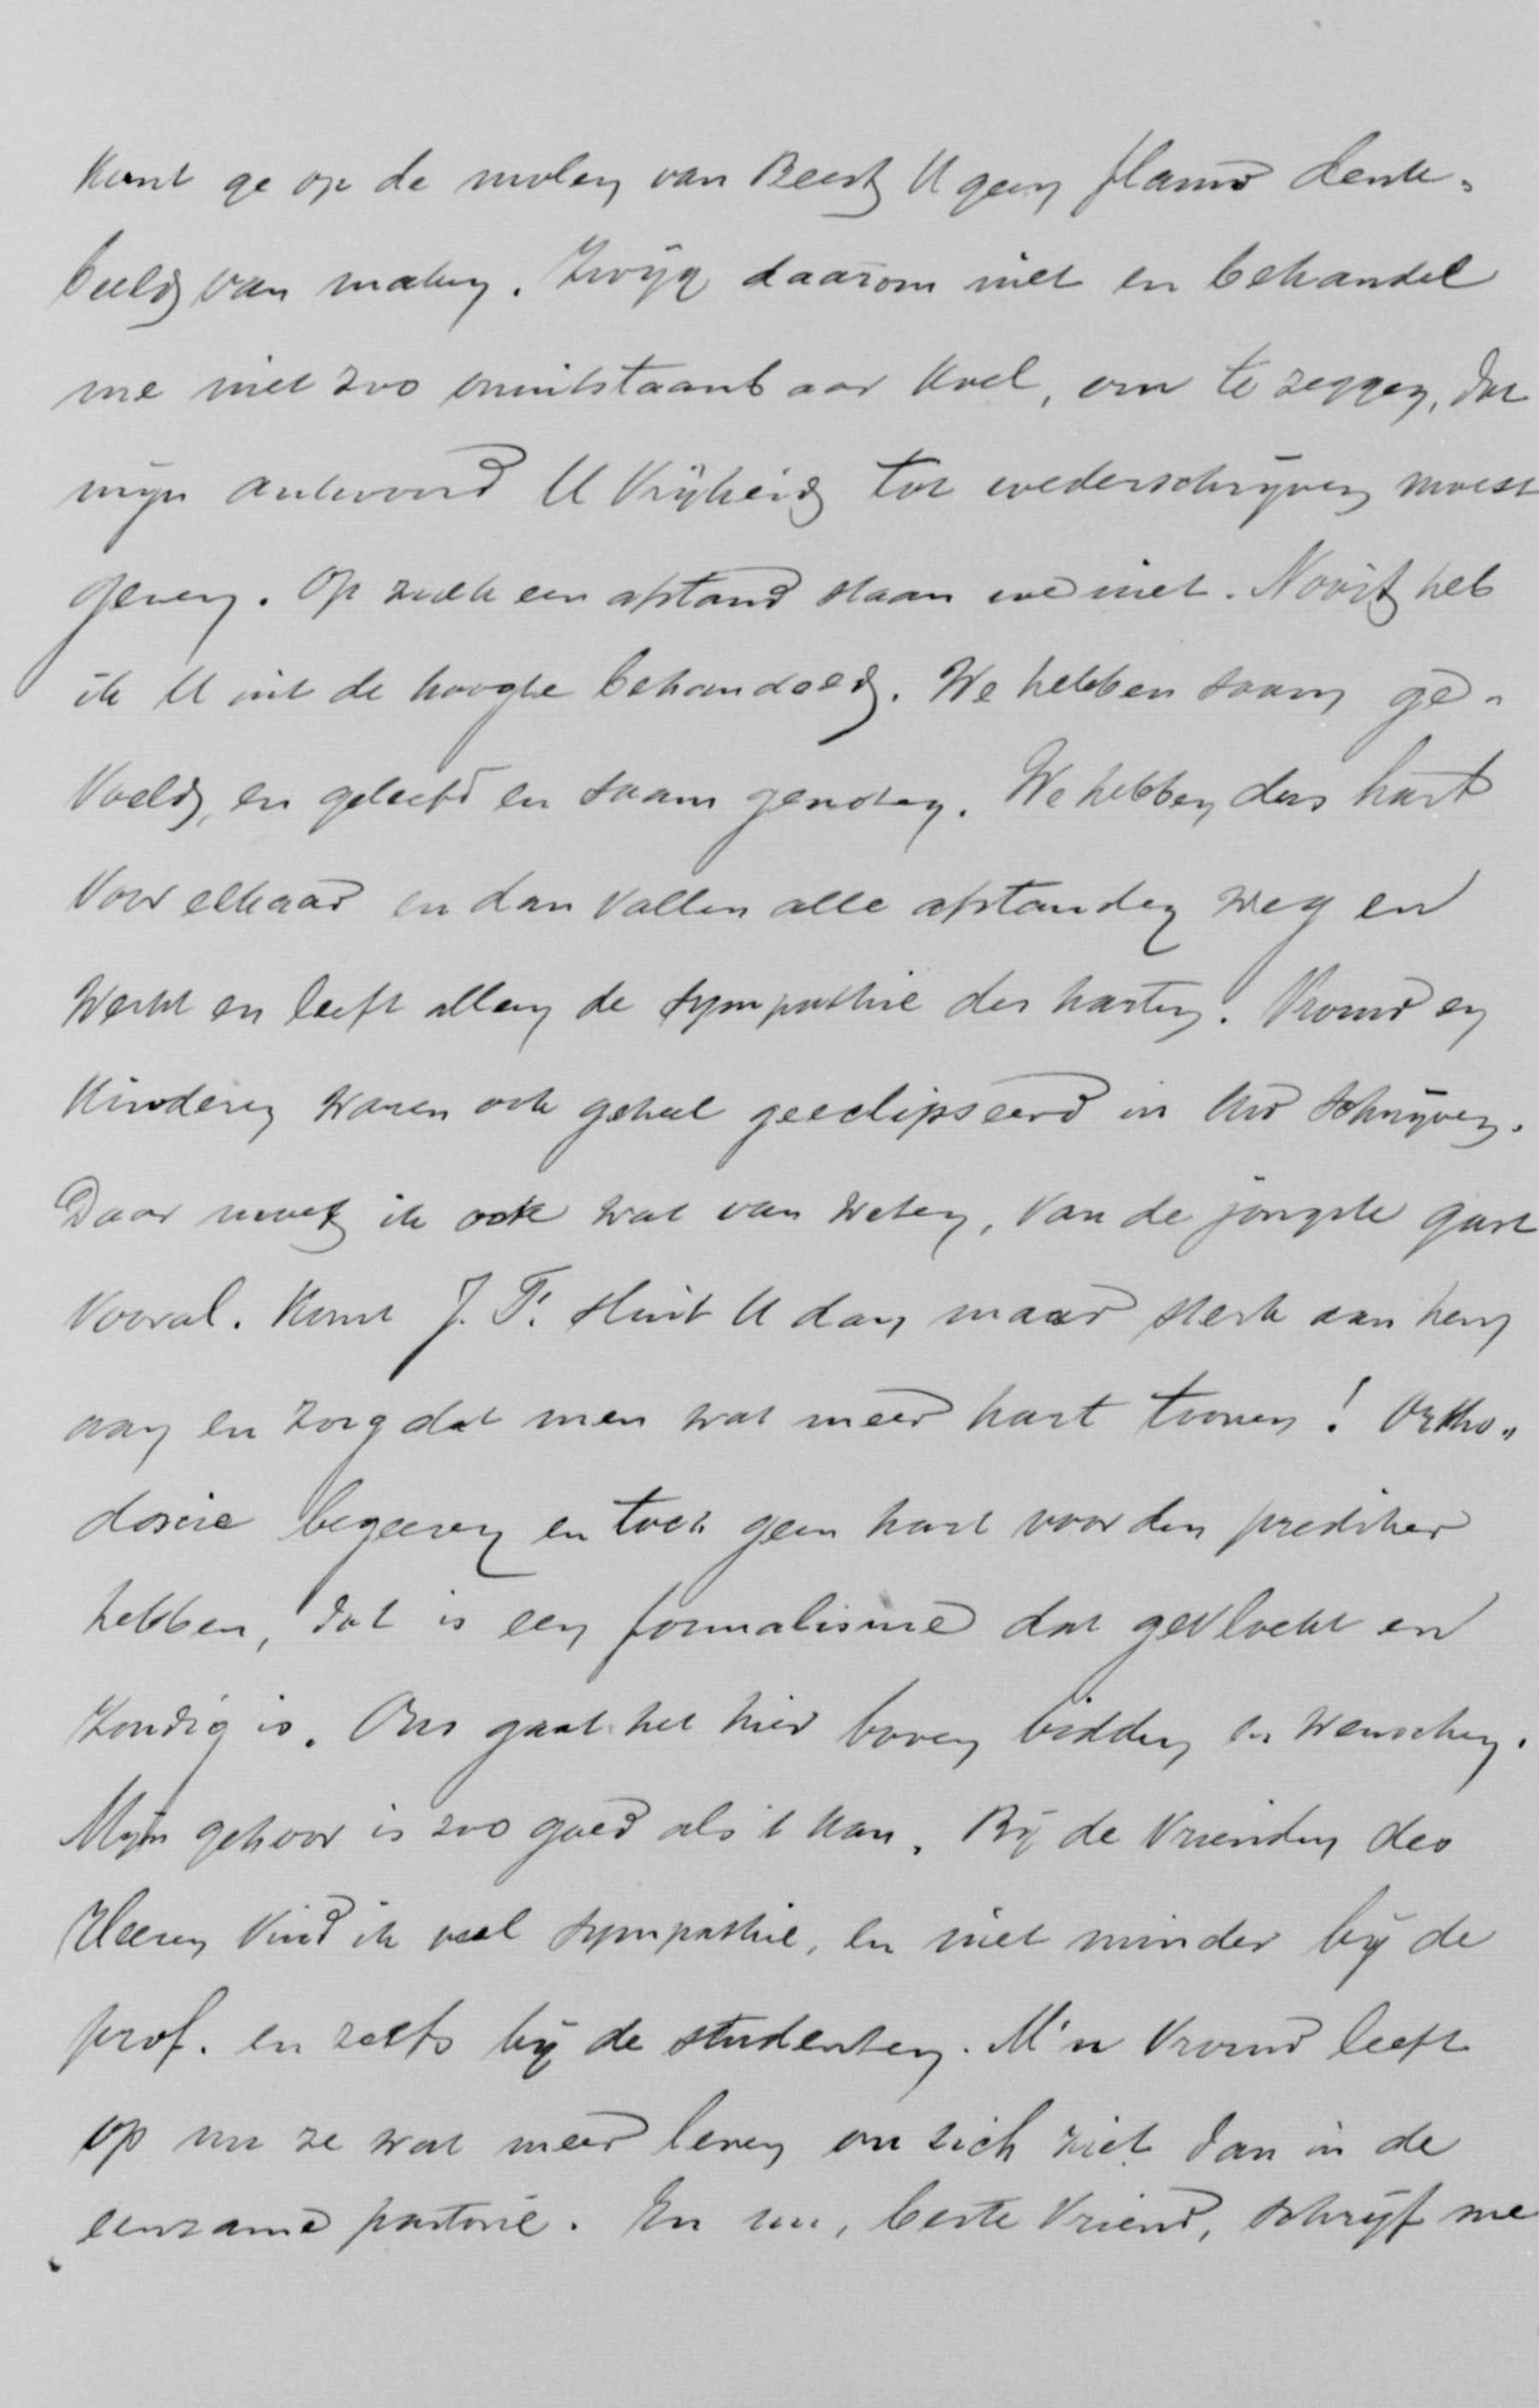 kunt ge op de molen van Beest U geen flauw denk-
beeld van maken. Zwijg daarom niet en behandel
me niet zoo onuitstaanbaar koel, om te zeggen, dat
mijn antwoord U Vrijheid tot wederschrijven moest
geven. Op zulk een afstand staan we niet. Nooit heb
ik U uit de hoogte behandeld. We hebben saam ge-
voeld, en geleefd en saam genoten. We hebben dus hart
voor elkaar en dan vallen alle afstanden weg en
werkt en leeft alleen de sympathie der harten. Vrouw en
Kinderen waren ook geheel geeclipseerd in Uw schrijven.
Daar moet ik ook wat van weten, van de jongste gast
vooral. Komt J. T. sluit U dan maar sterk aan hem
aan en zorg dat men wat meer hart toonen! Ortho-
doxie begeeren en toch geen hart voor den prediker
hebben, dat is een formalisme dat gevloekt en
zondig is. Ons gaat het hier boven bidden en wenschen.
Mijn gehoor is zoo goed als 't kan. Bij de Vrienden des
Heeren Vind ik veel sympathie, en niet minder bij de
prof. en zelfs bij de studenten. M'n Vrouw leeft
op nu ze wat meer leven om zich ziet dan in de
eenzame pastorie. En nu, beste Vriend, schrijf me